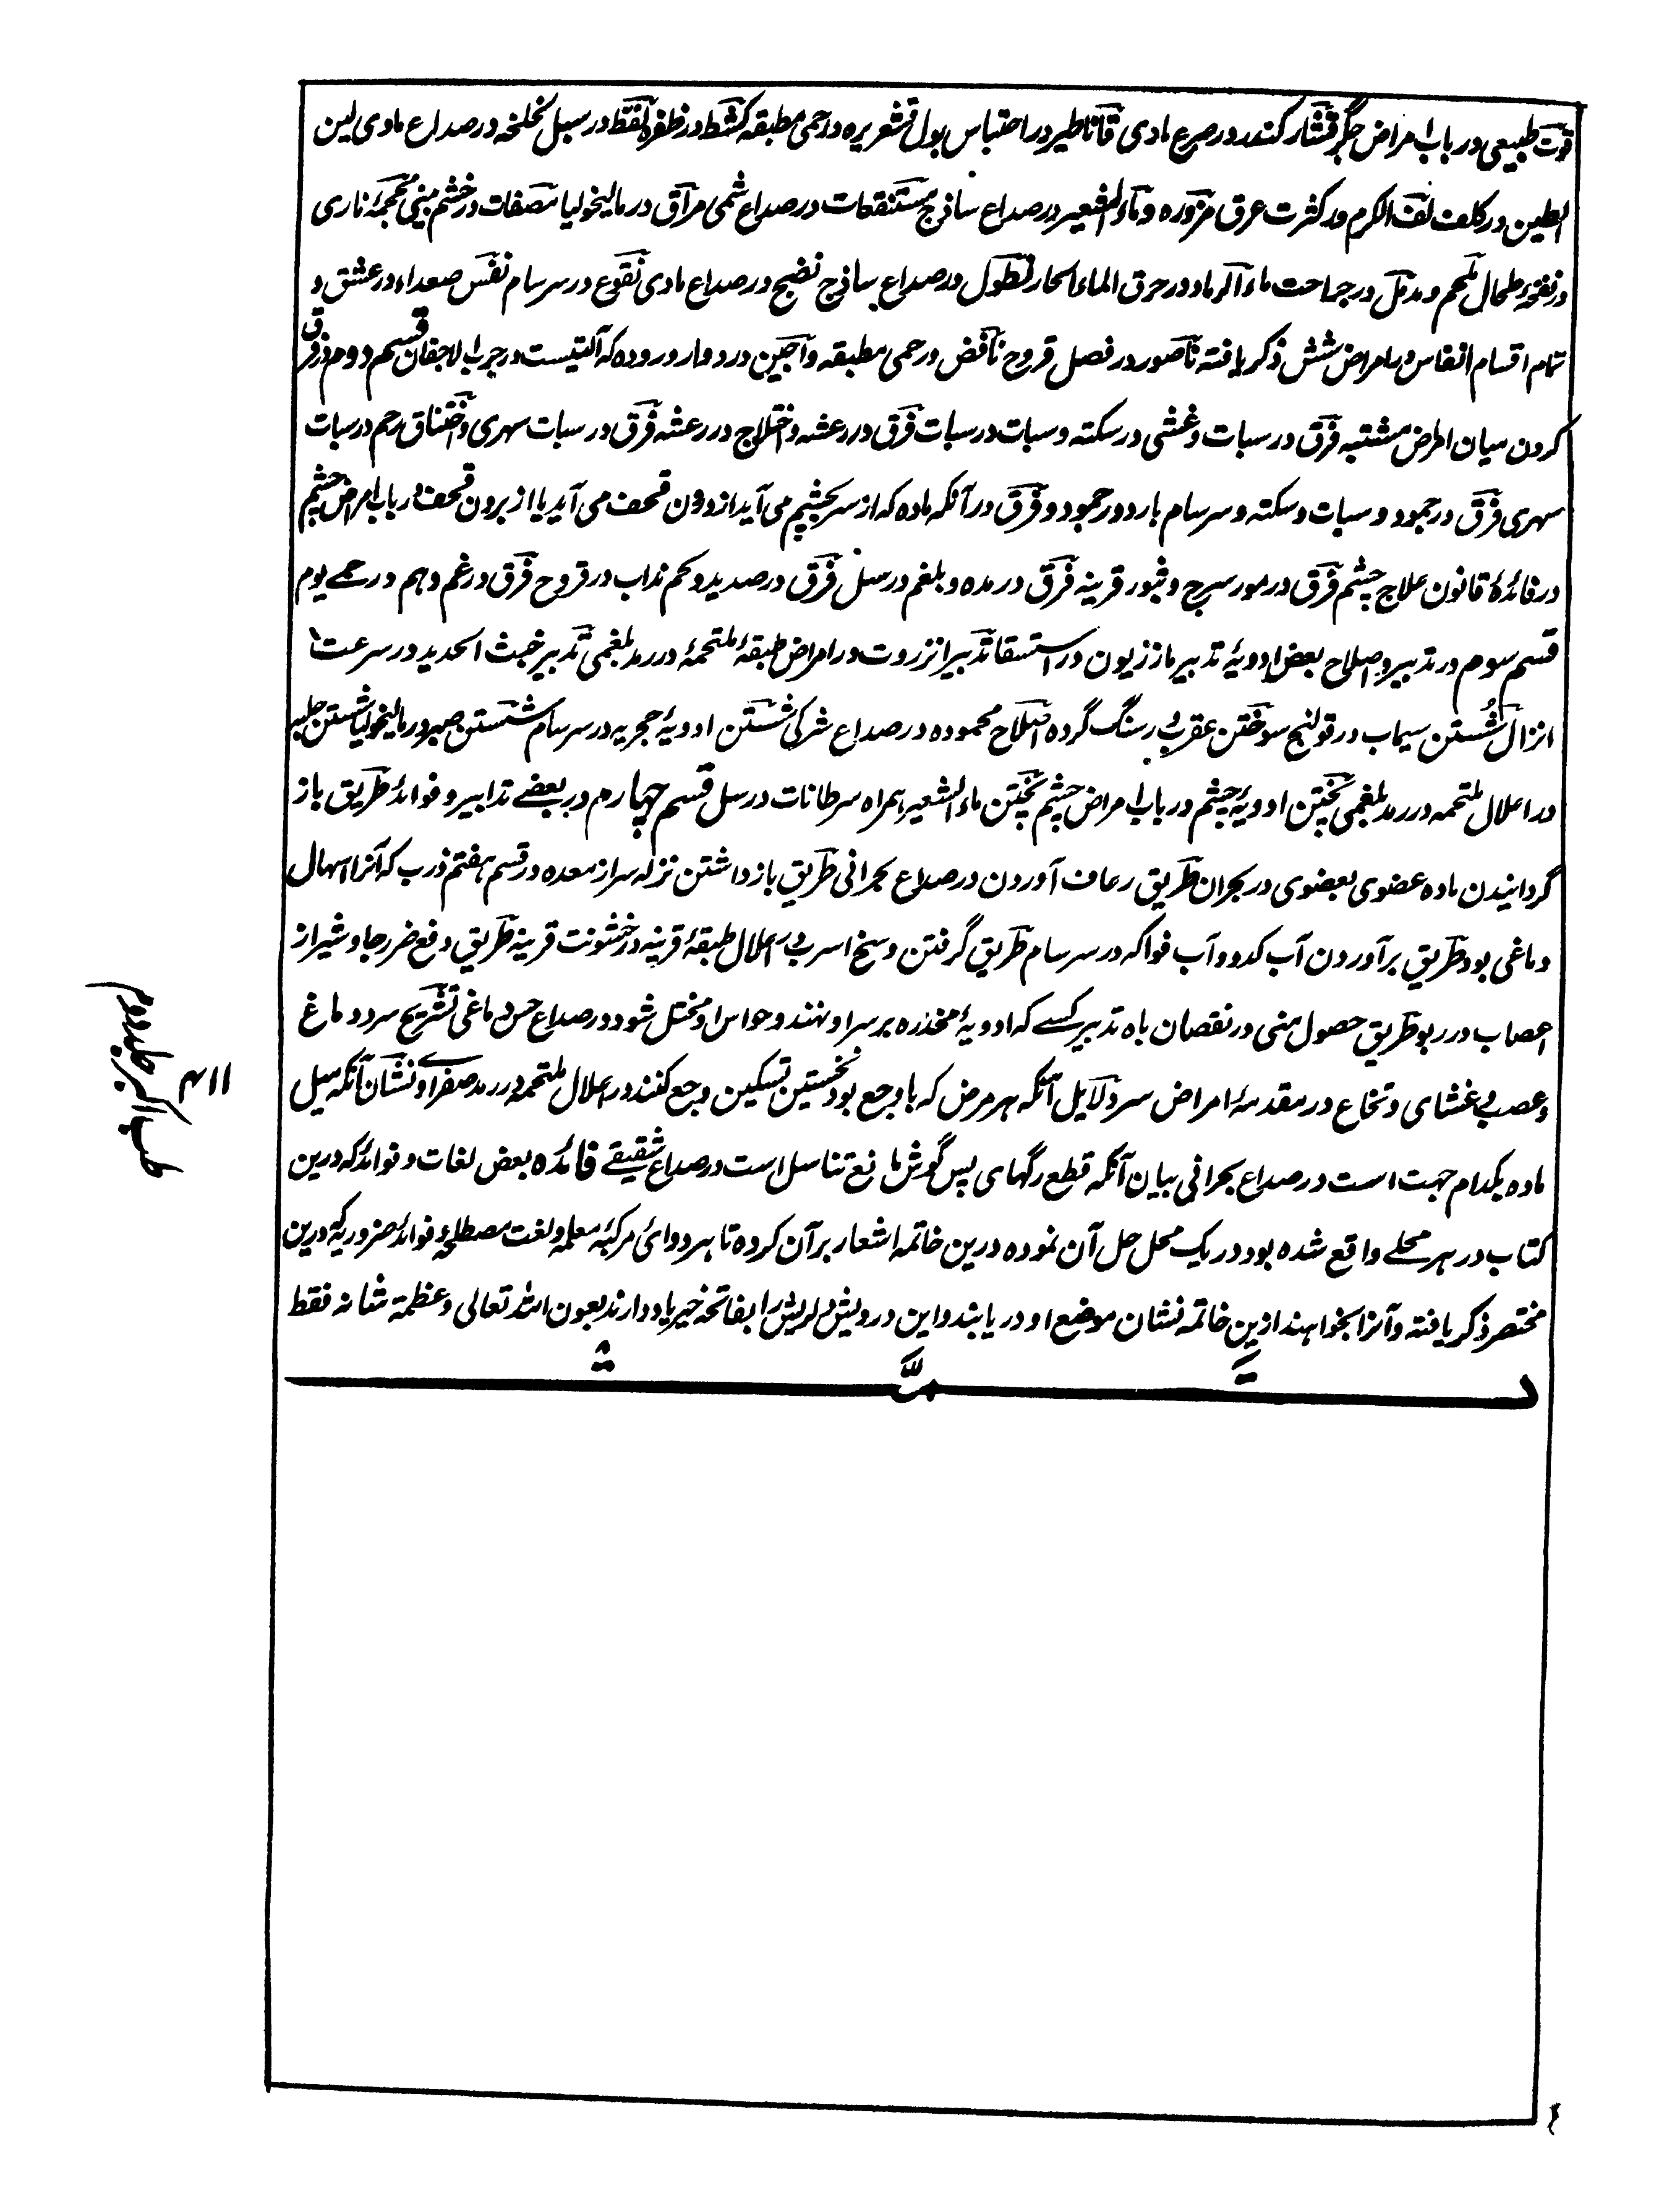 قوت طبیعی در باب امراض جگر قشار کندر در صرع مادی قاناطیر در احتباس بول قشعریره در حمی مطبقه کشط در ظفره لقط در سبل لخلخه در صداع مادی لین
الطین در کلف لف الکرم در کثرت عرق مزوره و ماء الشعیر در صداع ساذج مستنقعات در صداع شمی مراق در مالیخولیا مصفات در خشم بینی محجمهٔ ناری
در نفخهٔ طحال ملحم و مدمل در جراحت ماء الرماد در حرق الماء الحار نطول در صداع ساذج نضج در صداع مادی نقوع در سرسام نفس صعداء در عشق و
تمام اقسام انفاس در امراض شش ذکر یافته ناصور در فصل قروح نافض در حمی مطبقه و آجین در دوار و روده که آلتیست در جرب الاجفان قسم دوم در فرق
کردن میان امراض مشتبه فرق در سبات و غشی در سکته و سبات در سبات فرق در رعشه و اختلاج در رعشه فرق در سبات سهری و اختناق رحم در سبات
سهری فرق در جمود و سبات و سکته و سرسام بارد در جمود و فرق در آنکه ماده که از سر بچشم می آید از درون قحف می آید یا از برون قحف در باب امراض چشم
در فائدهٔ قانون علاج چشم فرق در مورسرج و بثور قرنیه فرق در مده و بلغم در سل فرق در صدید و لحم مذاب در قروح فرق در غم و هم در حمے یوم
قسم سوم در تدبیر و اصلاح بعض ادویهٔ تدبیر مازریون در استسقا تدبیر انزروت در امراض طبقهٔ ملتحمهٔ در رمد بلغمی تدبیر خبث الحدید در سرعت
انزال شستن سیماب در قولنج سوختن عقرب در سنگ گرده اصلاح محموده در صداع شرکی شستن ادویهٔ حجریه در سرسام شستن صبر در مالیخولیا شستن حلبه
در اعلال ملتحمه در رمد بلغمی پختن ادویهٔ چشم در باب امراض چشم پختن ماء الشعیر همراه سرطانات در سل قسم چهارم در بعضے تدابیر و فوائد طریق باز
گردانیدن ماده عضوی بعضوی در بحران طریق رعاف آوردن در صداع بحرانی طریق باز داشتن نزله سر از معده در قسم هفتم ذرب که آنرا اسهال
دماغی بود طریق برآوردن آب کدو و آب فواکه در سرسام طریق گرفتن وسخ اسرب در اعلال طبقهٔ قرنیه در خشونت قرنیه طریق دفع ضرر جاوشیر از
اعصاب در ربو طریق حصول منی در نقصان باه تدبیر کسے که ادویهٔ مخدره بر سر او نهند و حواس او مختل شود در صداع حس دماغی تشریح سر و دماغ
و عصب و غشای و نخاع در مقدمهٔ امراض سر دلایل آنکه هر مرض که با وجع بود نخستین تسکین وجع کنند در اعلال ملتحمه در رمد صفراوے نشان آنکه میل
ماده بکدام جهت است در صداع بحرانی بیان آنکه قطع رگهای پس گوش مانع تناسل است در صداع شقیقے فائده بعض لغات و فوائد که درین
کتاب در هر محلے واقع شده بود در یک محل حل آن نموده درین خاتمه اشعار بر آن کرده تا هر دوائی مرکبهٔ معلمه و لغت مصطلحه و فوائد ضروریه که درین
مختصر ذکر یافته و آنرا بخواهند ازین خاتمه نشان موضع او دریابند و این درویش دلریش را بفاتحه خیر یاد دارند بعون الله تعالی و عظمة شانه فقط
تمت
طب اکبر جلد دوم